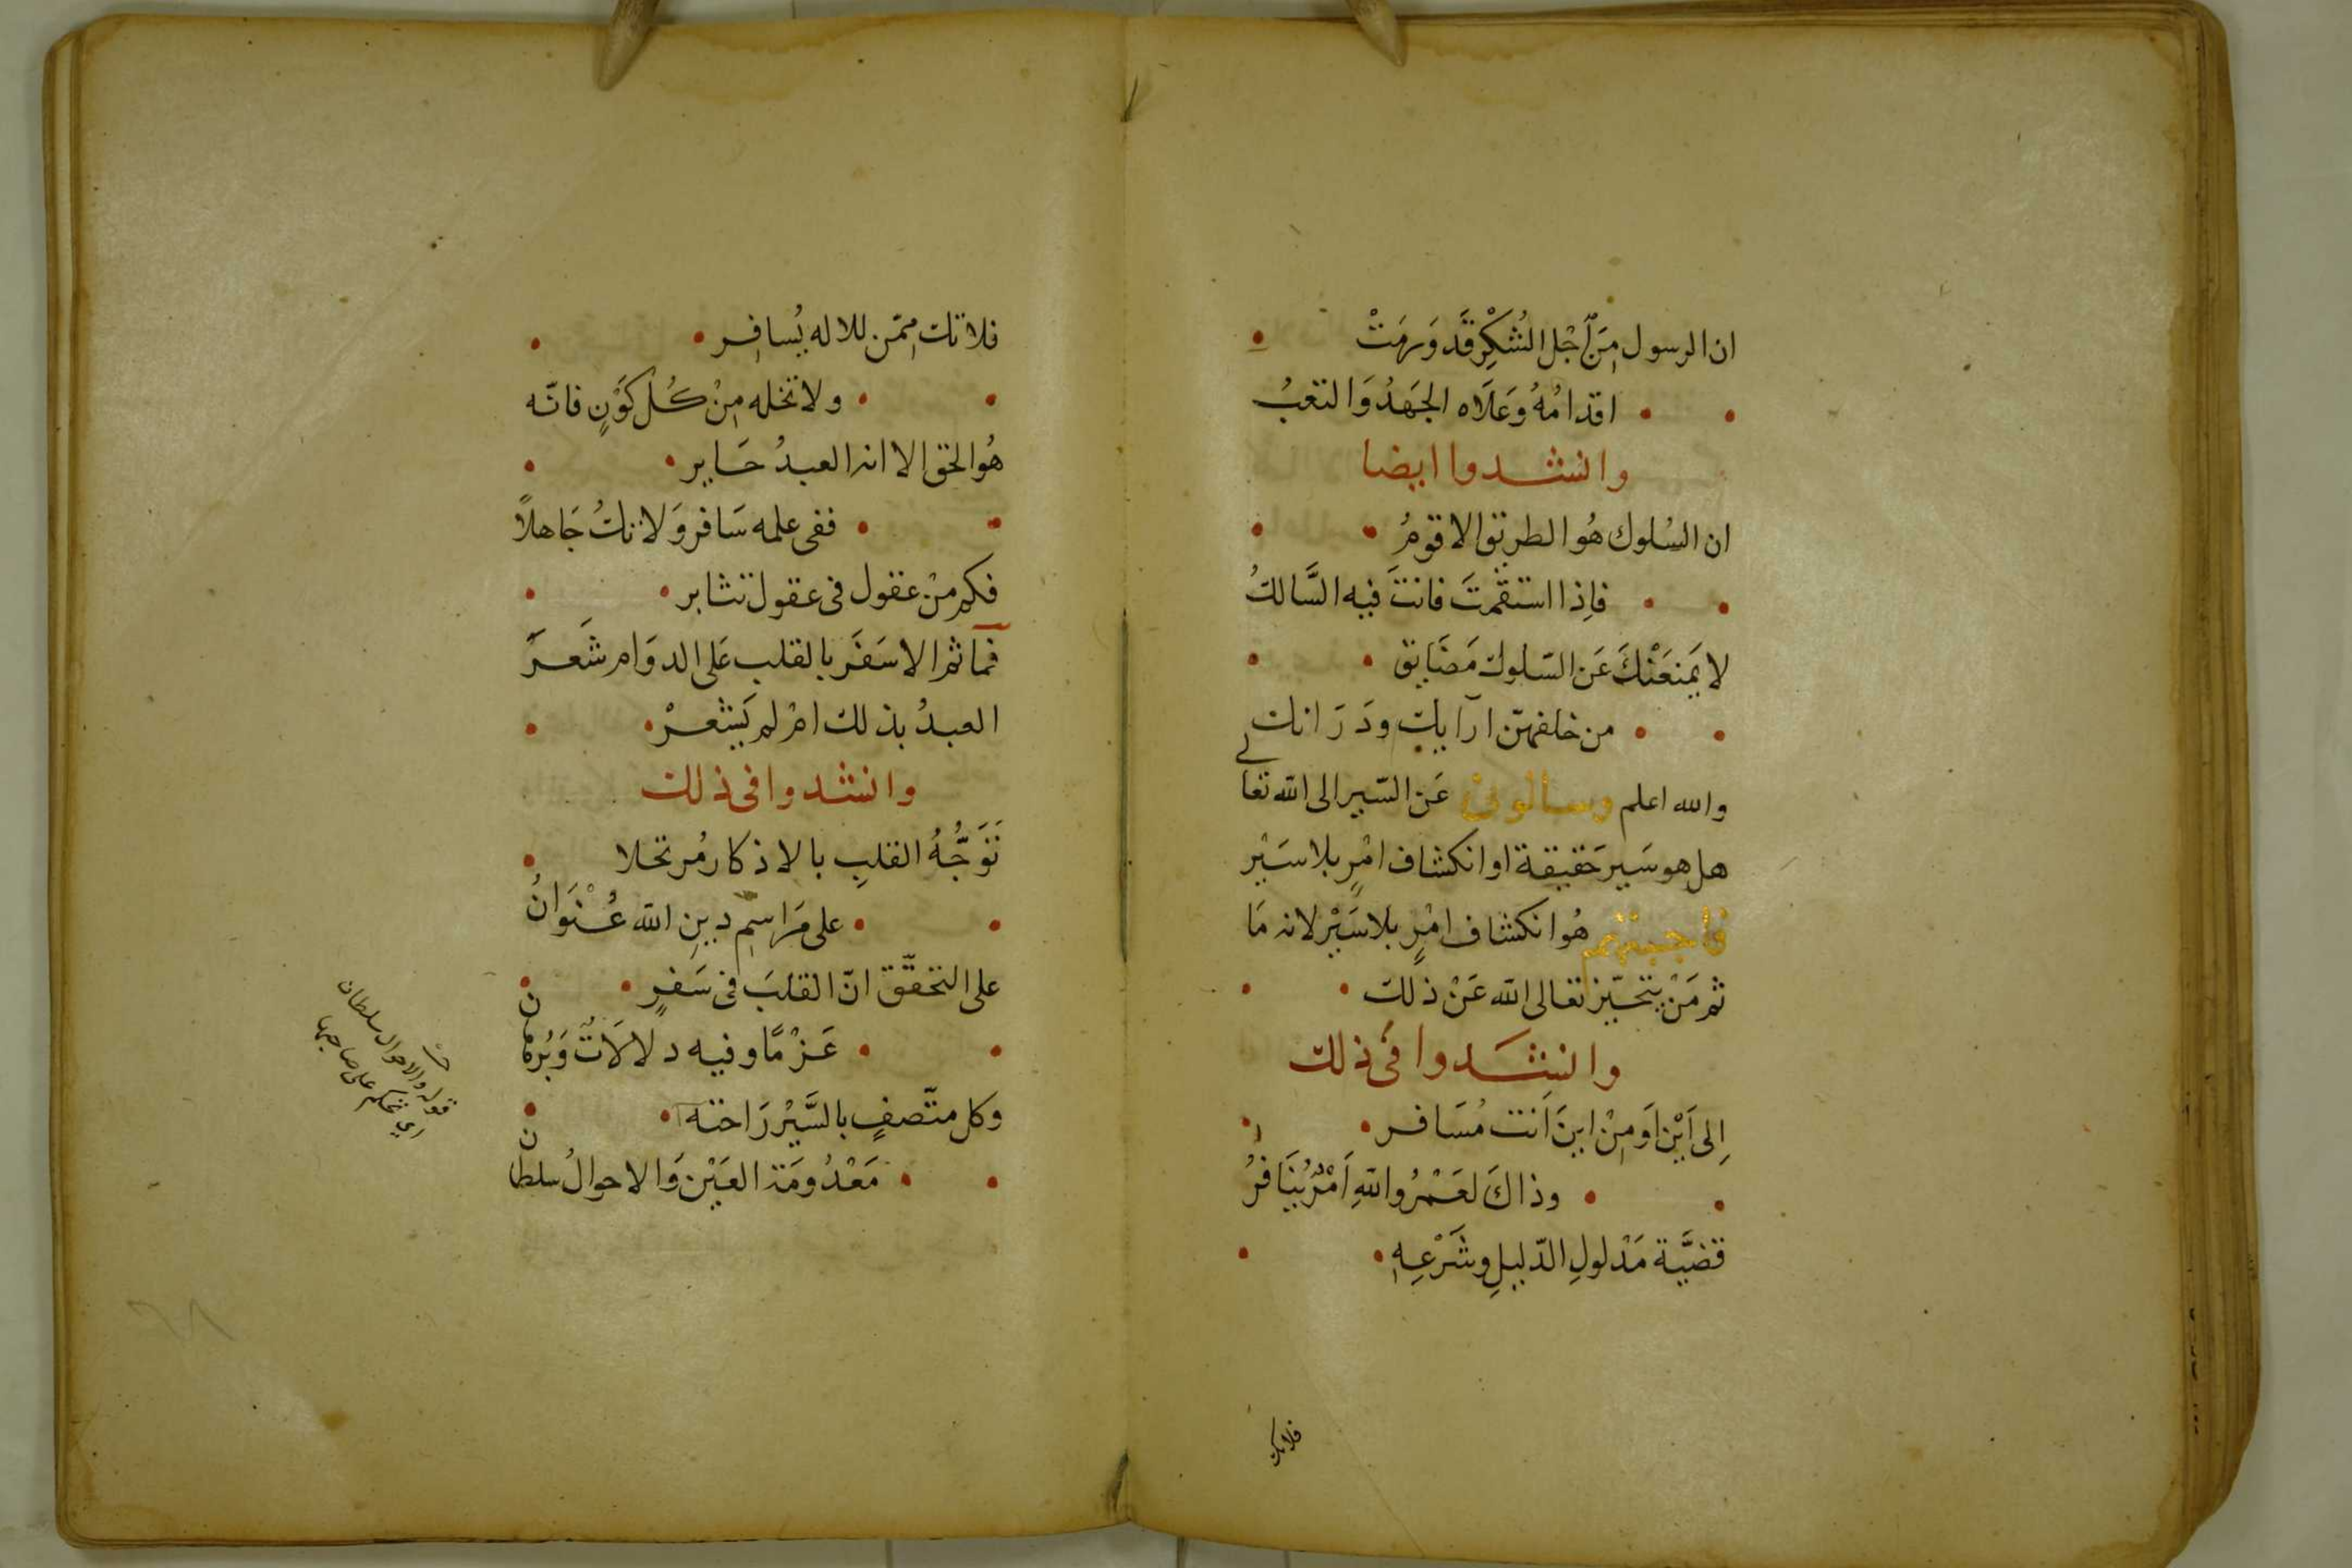 ان الرسول مِنَ اَجْلِ الشُكْرِ قَد وَرِمَتْ
اقدامُهُ وَعَلَاه الجَهَدُ وَالتعَبُ
وانشدوا ايضا
ان السُلوك هُو الطريق الاقومُ
فاِذا استقمتَ فانتَ فيه السَّالكُ
لا يَمنعَنْكَ عَن السّلوك مَضَايق
من خلفهنّ ارآيك ودَرَانك
والله اعلم وسالونى عَن السّير الى الله تعالى
هل هو سَير حَقيقة او انكشاف امْرٍ بلا سَيْر
فاجبتهم هُو انكشاف امْرٍ بلا سَيْر لانه مَا
ثم مَنْ يتحيّز تعالى الله عَنْ ذلك
وانشَدوا فى ذلك
اِلى اَيْن اَوَ مِنْ اينَ اَنت مُسَافر
وذاكَ لعَمْرُ واللهِ اَمْرٌ يُنَافرُ
قضيَّة مَدْلولِ الدّليلِ وشَرْعِهِ
فلا تك
فلا تك مِمّن للاله يُسافِر
ولا تخله مِنْ كُل كَوْنٍ فانّه
هُو الحق الا انه العبدُ حَاير
ففى علمه سَافر وَلا تكُ جَاهلاً
فكم مِنْ عقول فى عقول تثابر
فما ثم الا سَفَر بالقلب عَلى الدوَام شَعرَ
العبدُ بذلك امْ لم يَشعرْ
وانشدوا فى ذلك
تَوَجُّهُ القلبِ بالاذكار مُرتحلا
على مَرَاسِم دينِ الله عُنْوَانُ
على التحقّق انّ القلبَ فى سَفرٍ
عَزْمًا وفيه دلالَاتٌ وَبُرهان
وكل متّصفٍ بالسَّيْر رَاحته
مَعْدُومَة العَيْن وَالاحوالُ سلطان
قوله والاحوال سلطان
اي تحكم على صاحبها